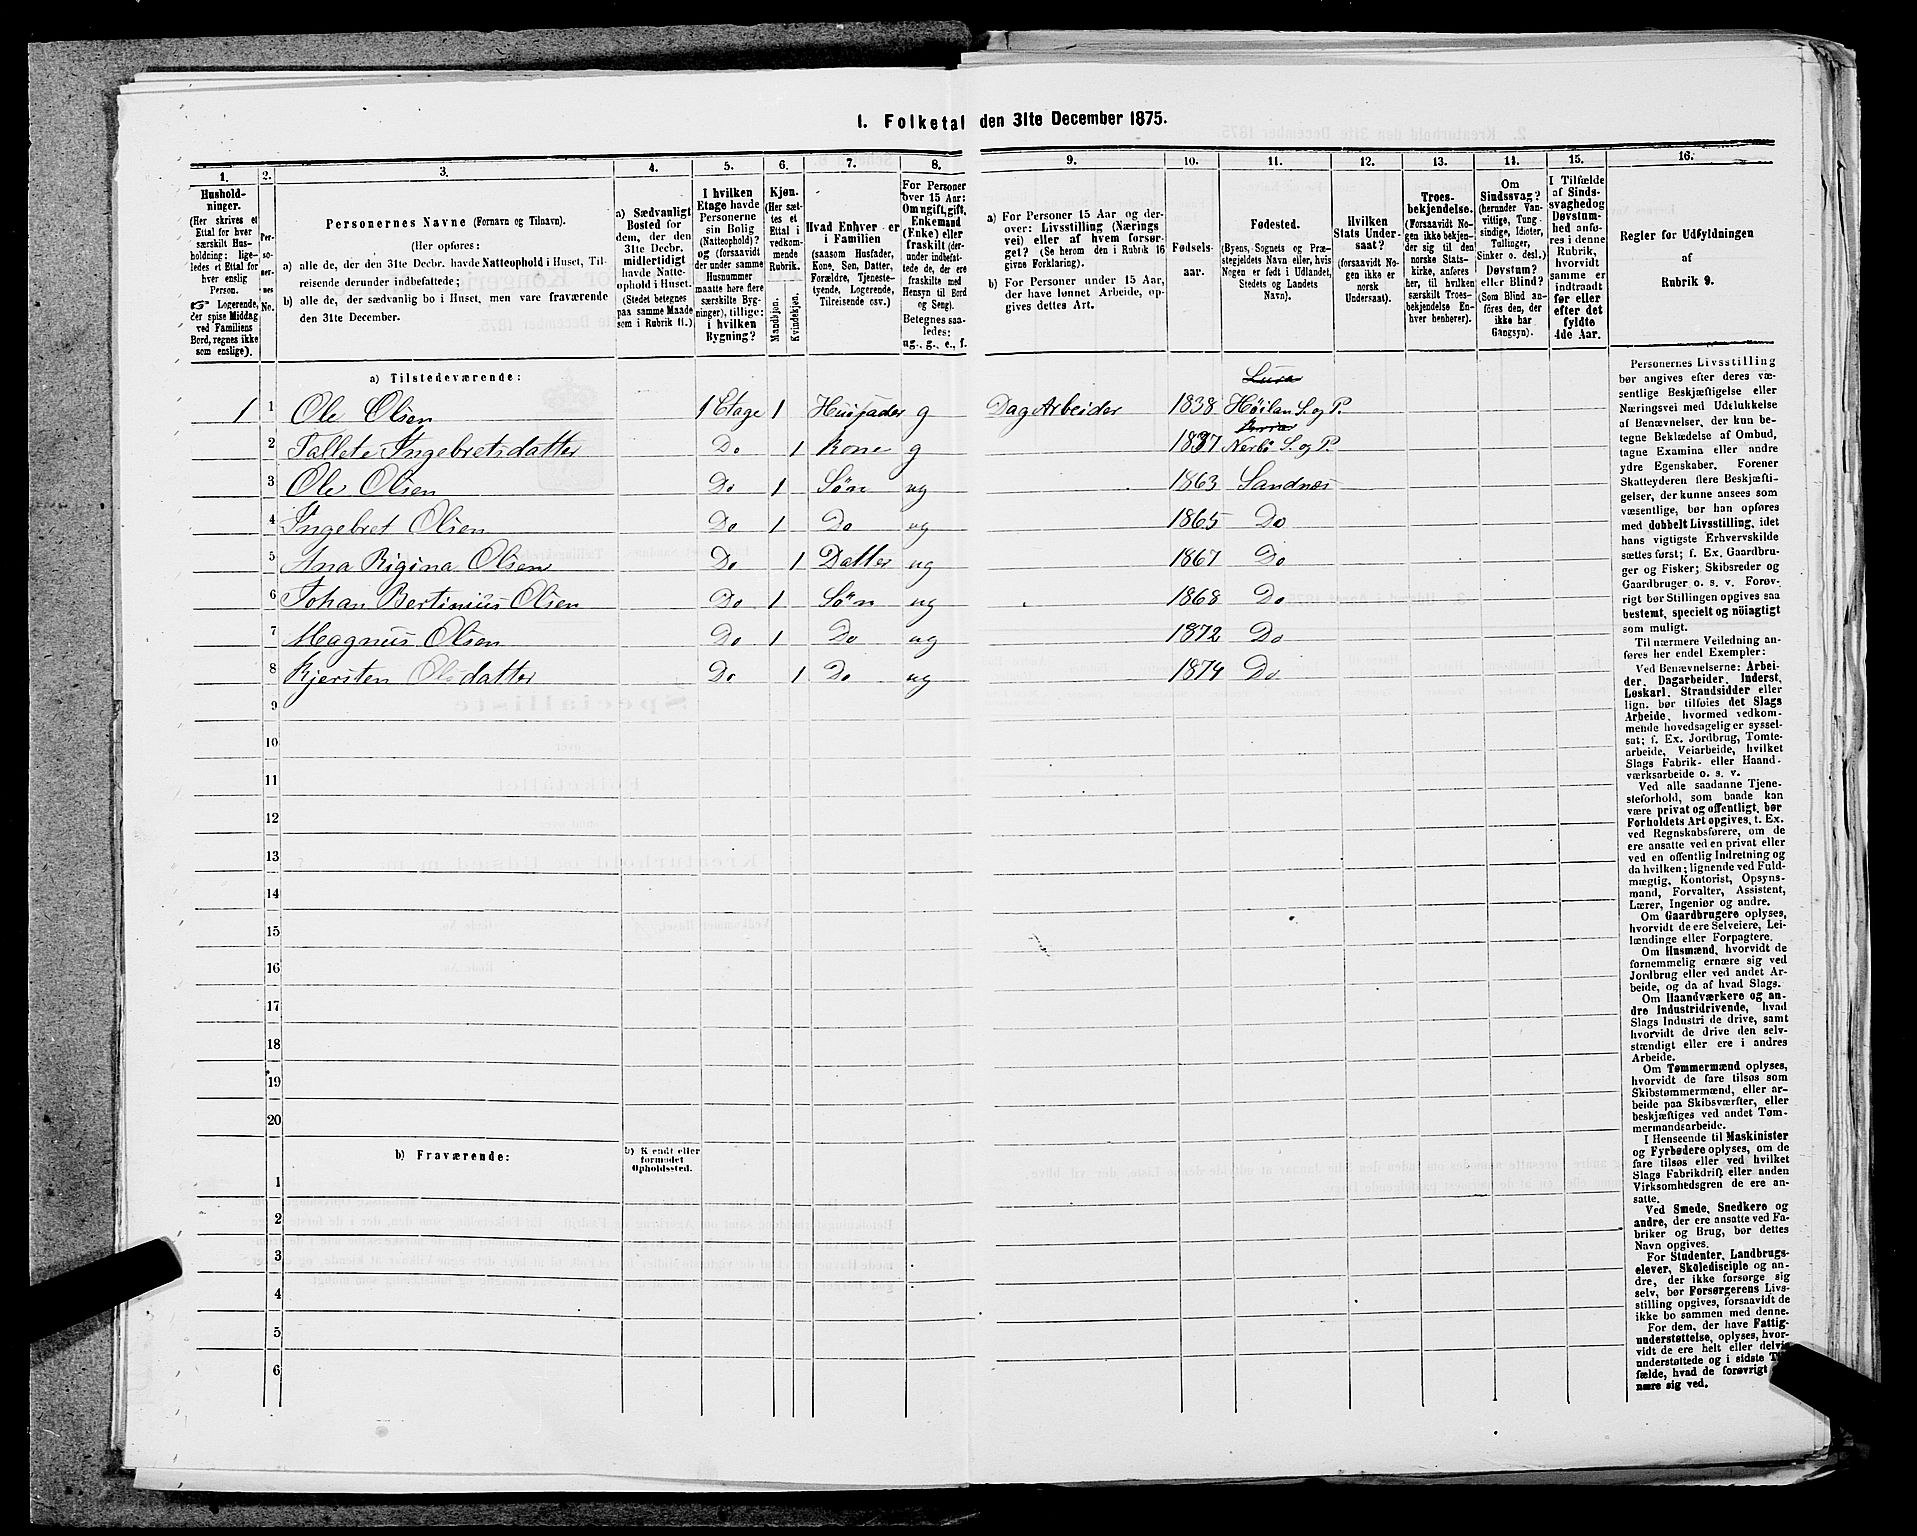 1. Folketal den 31te December 1875.
1.
2.
3.
4.
5.
6.
7.
8.
9.
10.
11.
12.
13.
14.
15.
16.
Hushold-
ninger.
(Her skrives et
Ettal for hver
særskilt Hus-
holdning; lige-
ledes et Ettal for
hver enslig
Person.
☞ Logerende,
der spise Middag
ved Familiens
Bord, regnes ikke
som enslige).
Per-
soner-
nes
No.
Personernes Navne (Fornavn og Tilnavn).
(Her opføres:
a) alle de, der den 31te Decbr. havde Natteophold i Huset, Til-
reisende derunder indbefattede;
b) alle de, der sædvanlig bo i Huset, men vare fraværende
den 31te December.
a) Sædvanligt
Bosted for
dem, der den
31te Decbr.
midlertidigt
havde Natte-
ophold i Huset.
(Stedet betegnes
paa samme Maade
som i Rubrik 11.)
I hvilken
Etage havde
Personerne
sin Bolig
(Natteophold)?
og (forsaavidt
der under samme
Husnummer
maatte høre flere
særskilte Byg-
ninger), tillige:
i hvilken
Bygning?
Kjøn.
(Her sæt-
tes et
Ettal i
vedkom-
mende
Rubrik.
Mandkjøn.
Kvindekjøn.
Hvad Enhver er
i Familien
(saasom Husfader,
Kone, Søn, Datter,
Forældre, Tjeneste-
tyende, Logerende,
Tilreisende osv.)
For Personer
over 15 Aar:
Om ugift, gift,
Enkemand
(Enke) eller
fraskilt (der-
under indbefat-
tede de, der ere
fraskilte med
Hensyn til Bord
og Seng).
Betegnes saa-
ledes:
ug., g., e., f.
a) For Personer 15 Aar og der-
over: Livsstilling (Nærings
vei) eller af hvem forsør-
get? (Se herom den i Rubrik 16
givne Forklaring).
b) For Personer under 15 Aar,
der have lønnet Arbeide, op-
gives dettes Art.
Fødsels-
aar.
Fødested.
(Byens, Sognets og Præ-
stegjeldets Navn eller, hvis
Nogen er født i Udlandet,
Stedets og Landets
Navn).
Hvilken
Stats Under-
saat?
(forsaavidt No-
gen ikke er
norsk
Undersaat).
Troes-
bekjendelse.
(Forsaavidt No-
gen ikke bekjen-
der sig til den
norske Stats-
kirke, anføres
her, til hvilken
særskilt Troes-
bekjendelse En-
hver henhører).
Om
Sindssvag?
(herunder Van-
vittige, Tung
sindige, Idioter,
Tullinger,
Sinker o. desl.)
Døvstum?
eller Blind?
(Som Blind an-
føres den, der
ikke har
Gangsyn).
I Tilfælde
af Sinds-
svaghed og
Døvstum-
hed anfø-
res i denne
Rubrik,
hvorvidt
samme er
indtraadt
før eller
efter det
fyldte
4de Aar.
Regler for Udfyldningen
af
Rubrik 9.
a) Tilstedeværende:
Lura
1 1 Ole Olsen 1 Etage 1 Husfader g DagArbeider 1838 Høiland S. og P.
2 Tallete Ingebretsdatter Do 1 Kone g 1837 Nerbø S. og P.
3 Ole Olsen Do 1 Søn ug 1863 Sandnæs
4 Ingebret Olsen Do 1 Do ug 1865 Do
5 Ana Rigina Olsen Do 1 Datter ug 1867 Do
6 Johan Bertinius Olsen Do 1 Søn ug 1868 Do
7 Magnus Olsen Do 1 Do ug 1872 Do
8 Kjersten Olsdatter Do 1 Do ug 1874 Do
9
10
11
12
13
14
15
16
17
18
19
20
b) Fraværende:
b) Kjendt eller
formodet
Opholdssted.
1
2
3
4
5
6
Personernes Livsstilling
bør angives efter deres væ-
sentlige Beskjæftigelse eller
Næringsvei med Udelukkelse
af Benævnelser, der kun be-
tegne Beklædelse af Ombud,
tagne Examina eller andre
ydre Egenskaber. Forener
Skatteyderen flere Beskjæfti-
gelser, der kunne ansees som
væsentlige, bør han opføres
med dobbelt Livsstilling, idet
hans vigtigste Erhvervskilde
sættes først; f. Ex. Gaardbru-
ger og Fisker; Skibsreder og
Gaardbruger o. s. v. Forøv-
rigt bør Stillingen opgives saa
bestemt, specielt og nøiagtigt
som muligt.
Til nærmere Veiledning an-
føres her endel Exempler:
Ved Benævnelserne: Arbei-
der, Dagarbeider, Inderst,
Løskarl, Strandsidder eller
lign. bør tilføies det Slags
Arbeide, hvormed vedkom-
mende hovedsagelig er syssel-
sat; f. Ex. Jordbrug, Tomte-
arbeide, Veiarbeide, hvilket
Slags Fabrik- eller Haand-
værksarbeide o. s. v.
Ved alle saadanne Tjene-
steforhold, som baade kan
være privat og offentligt, bør
Forholdets Art opgives, t. Ex.
ved Regnskabsførere, om de
ere ansatte ved en privat eller
ved en offentlig Indretning og
da hvilken; lignende ved Fuld-
mægtig, Kontorist, Opsyns-
mand, Forvalter, Assistent,
Lærer, Ingeniør og andre.
Om Gaardbrugere oplyses,
hvorvidt de ere Selveiere, Lei-
lændinge eller Forpagtere.
Om Husmænd, hvorvidt de
fornemmelig ernære sig ved
Jordbrug eller ved andet Ar-
beide, og da af hvad Slags.
Om Haandværkere og an-
dre Industridrivende, hvad
Slags Industri de drive, samt
hvorvidt de drive den selv-
stændigt eller ere i andres
Arbeide.
Om Tømmermænd oplyses,
hvorvidt de fare tilsøs som
Skibstømmermænd, eller ar-
beide paa Skibsværfter, eller
beskjæftiges ved andet Tøm-
mermandsarbeide.
I Henseende til Maskinister
og Fyrbødere oplyses, om de
fare tilsøs eller ved hvilket
Slags Fabrikdrift eller anden
Virksomhedsgren de ere an-
satte.
Ved Smede, Snedkere og
andre, der ere ansatte ved Fa-
briker og Brug, bør dettes
Navn opgives.
For Studenter, Landbrugs-
elever, Skoledisciple og an-
dre, der ikke forsørge sig
selv, bør Forsørgerens Livs-
stilling opgives, forsaavidt de
ikke bo sammen med denne.
For dem, der have Fattig-
understøttelse, oplyses, hvor-
vidt de ere helt eller delvis
understøttede og i sidste
fælde, hvad de forøvrigt
nære sig ved.